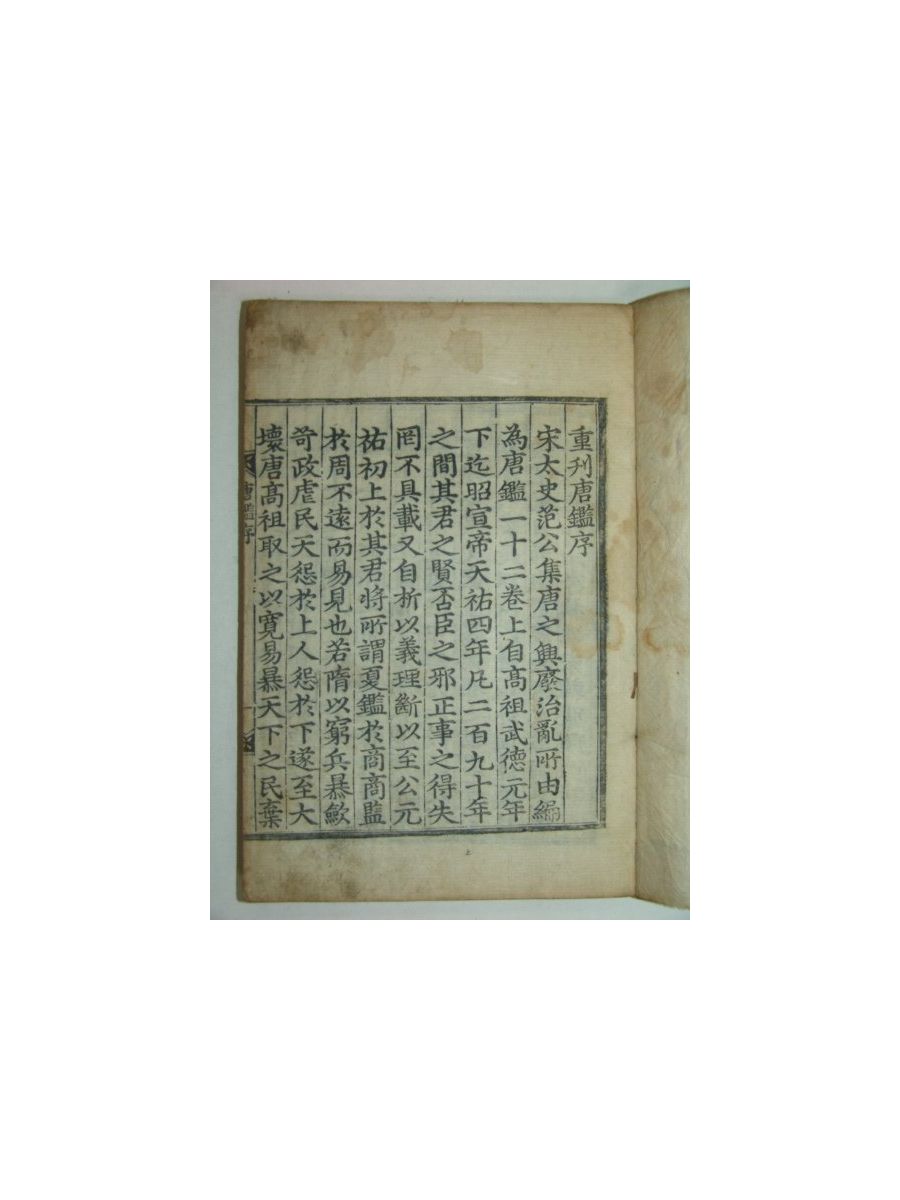 重刋唐鑑序
宋太史范公集唐之興廢治亂所由編
為唐鑑一十二卷上自髙祖武徳元年
下迄昭宣帝天祐四年凡二百九十年
之間其君之賢否臣之邪正事之得失
罔不具載又自析以義理斷以至公元
祐初上於其君將所謂夏鑑於商商監
於周不遠而易見也若隋以窮兵暴歛
苛政虐民天怨於上人怨於下遂至大
壞唐髙祖取之以寛易暴天下之民棄
唐鑑序